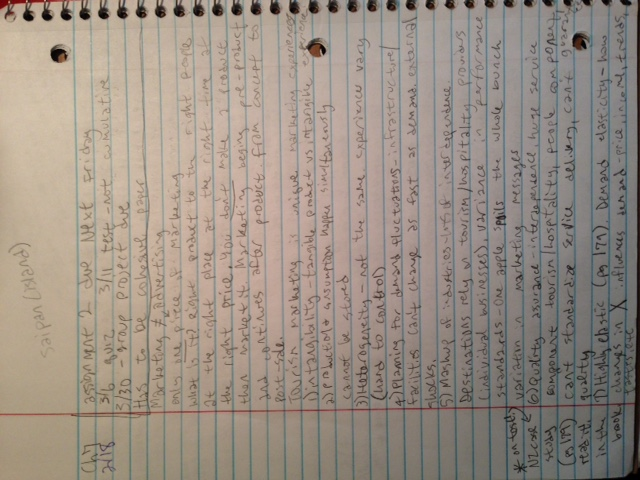 saipan (island)
Ch 7 assignment 2 due Next Friday
2/18 3/6 quiz 3/11 test - not cumulative
3/30 - group project due
Has to be cohesive paper
Marketing ≠ advertising
only one piece of marketing
what is it? right product to the right people
at the right place at the right time at
the right price, you don't make a product
then market it. Marketing begins pre-product
and continues after product from concept to
post-sale.
Tourism marketing is unique marketing experiences
1) intangibility - tangible product vs intangible experience
2) production & consumption happen simultaneously
cannot be stored
3) Heterogeneity - not the same experience vary
(hard to control)
4) Planning for demand fluctuations - infrastructure/
facilities can't change as fast as demand. external
shocks.
5) Mashup of industries - lots of interdependence.
Destinations rely on tourism/hospitality providers
(individual businesses), variance in performance
standards - One apple spoils the whole bunch
* on test variation in marketing messages
6) Quality assurance - interexperience, huge service
study component tourism hospitality, people component
(pg 179) can't standardize service delivery, can't
read it quality
in the 7) Highly elastic (pg 179) Demand elasticity - how
book changes in X influences demand - price, income, trends,